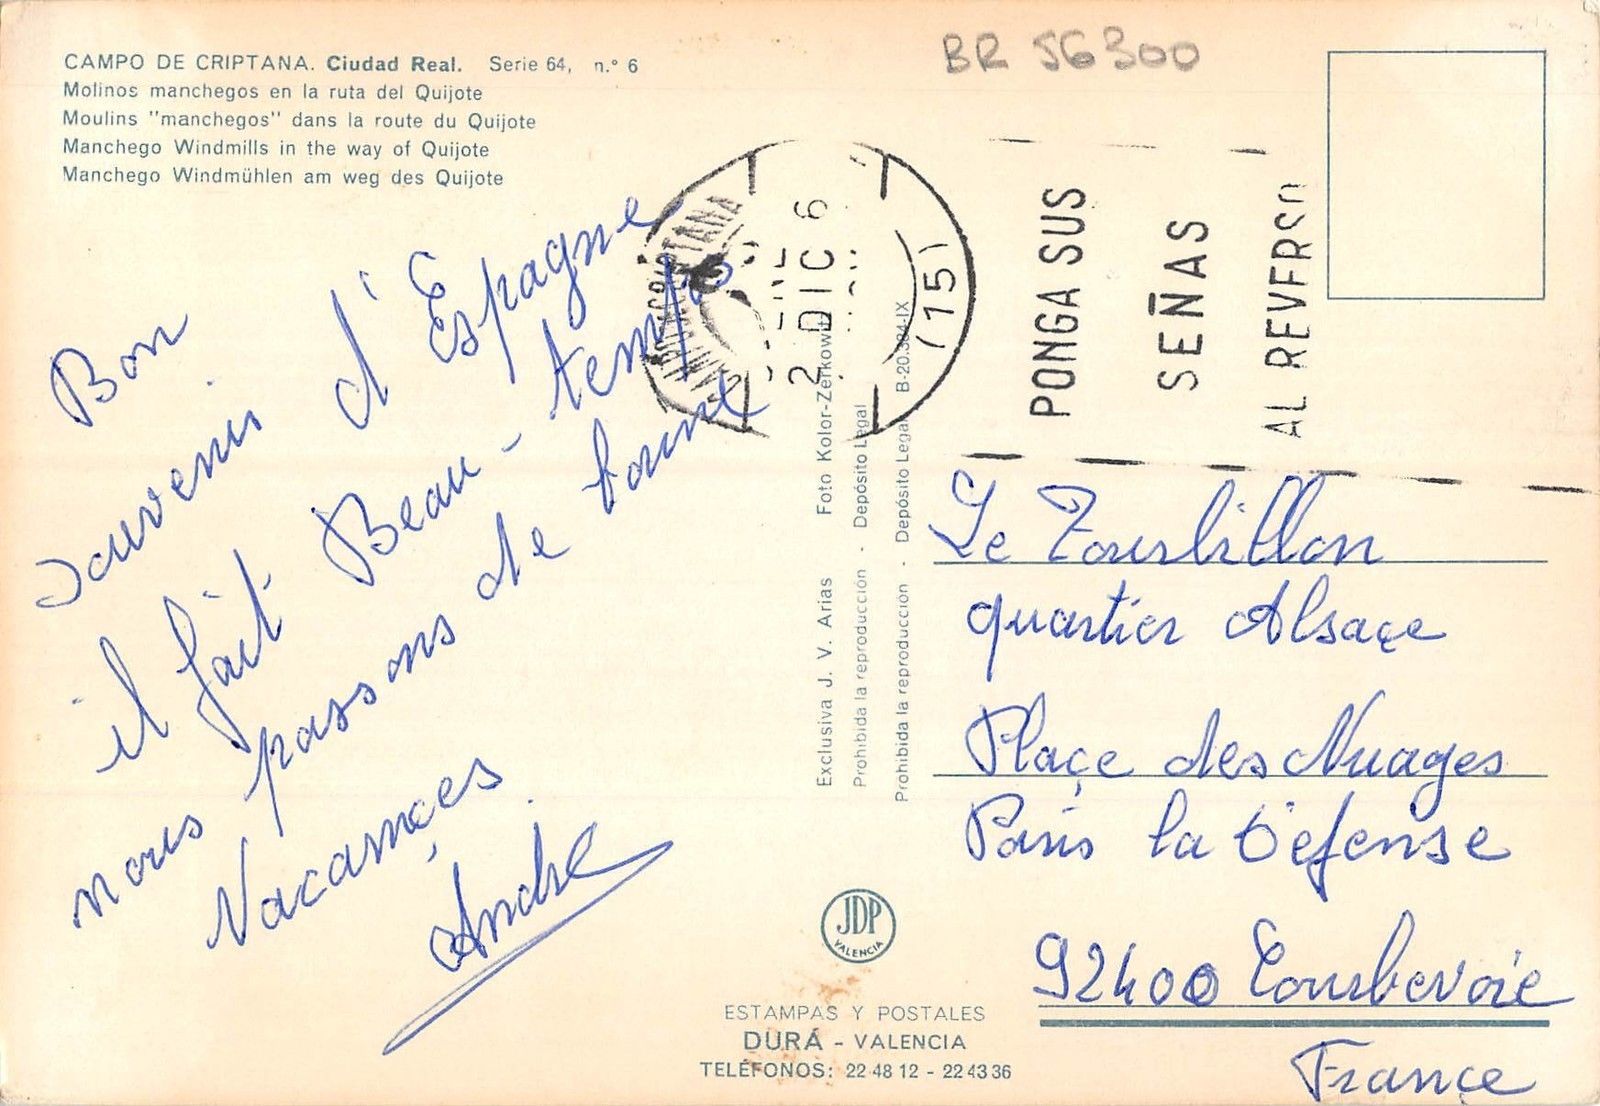 CAMPO DE CRIPTANA. Ciudad Real. Serie 64, n.° 6
Molinos manchegos en la ruta del Quijote
Moulins "manchegos" dans la route du Quijote
Manchego Windmills in the way of Quijote
Manchego Windmühlen am weg des Quijote
BR 56300
CRIPTANA
2 DIC 6
(15)
PONGA SUS
SEÑAS
AL REVERSO
Bon
souvenir d'Espagne
il fait Beau-temps
nous passons de bonne
Vacançes
André
Exclusiva J. V. Arias Foto Kolor-Zerkowitz
Prohibida la reproducción · Depósito Legal
Prohibida la reproducción · Depósito Legal B-20.304-IX
Le Tourbillon
quartier Alsaçe
Plaçe des Nuages
Paris la Défense
92400 Courbevoie
France
JDP
VALENCIA
ESTAMPAS Y POSTALES
DURÁ - VALENCIA
TELÉFONOS: 22 48 12 - 22 43 36